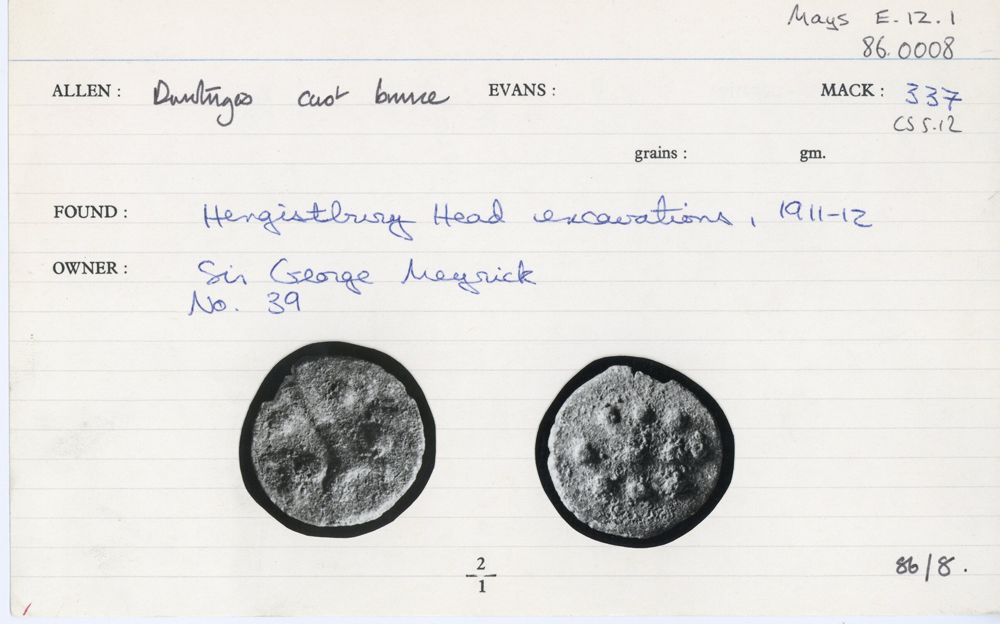 Mays E.12.1
86.0008
ALLEN : Durotriges cast bronze EVANS : MACK : 337
CS 5.12
grains : gm.
FOUND : Hengistbury Head excavations, 1911-12
OWNER : Sir George Meyrick
No. 39
2
1
86/8.